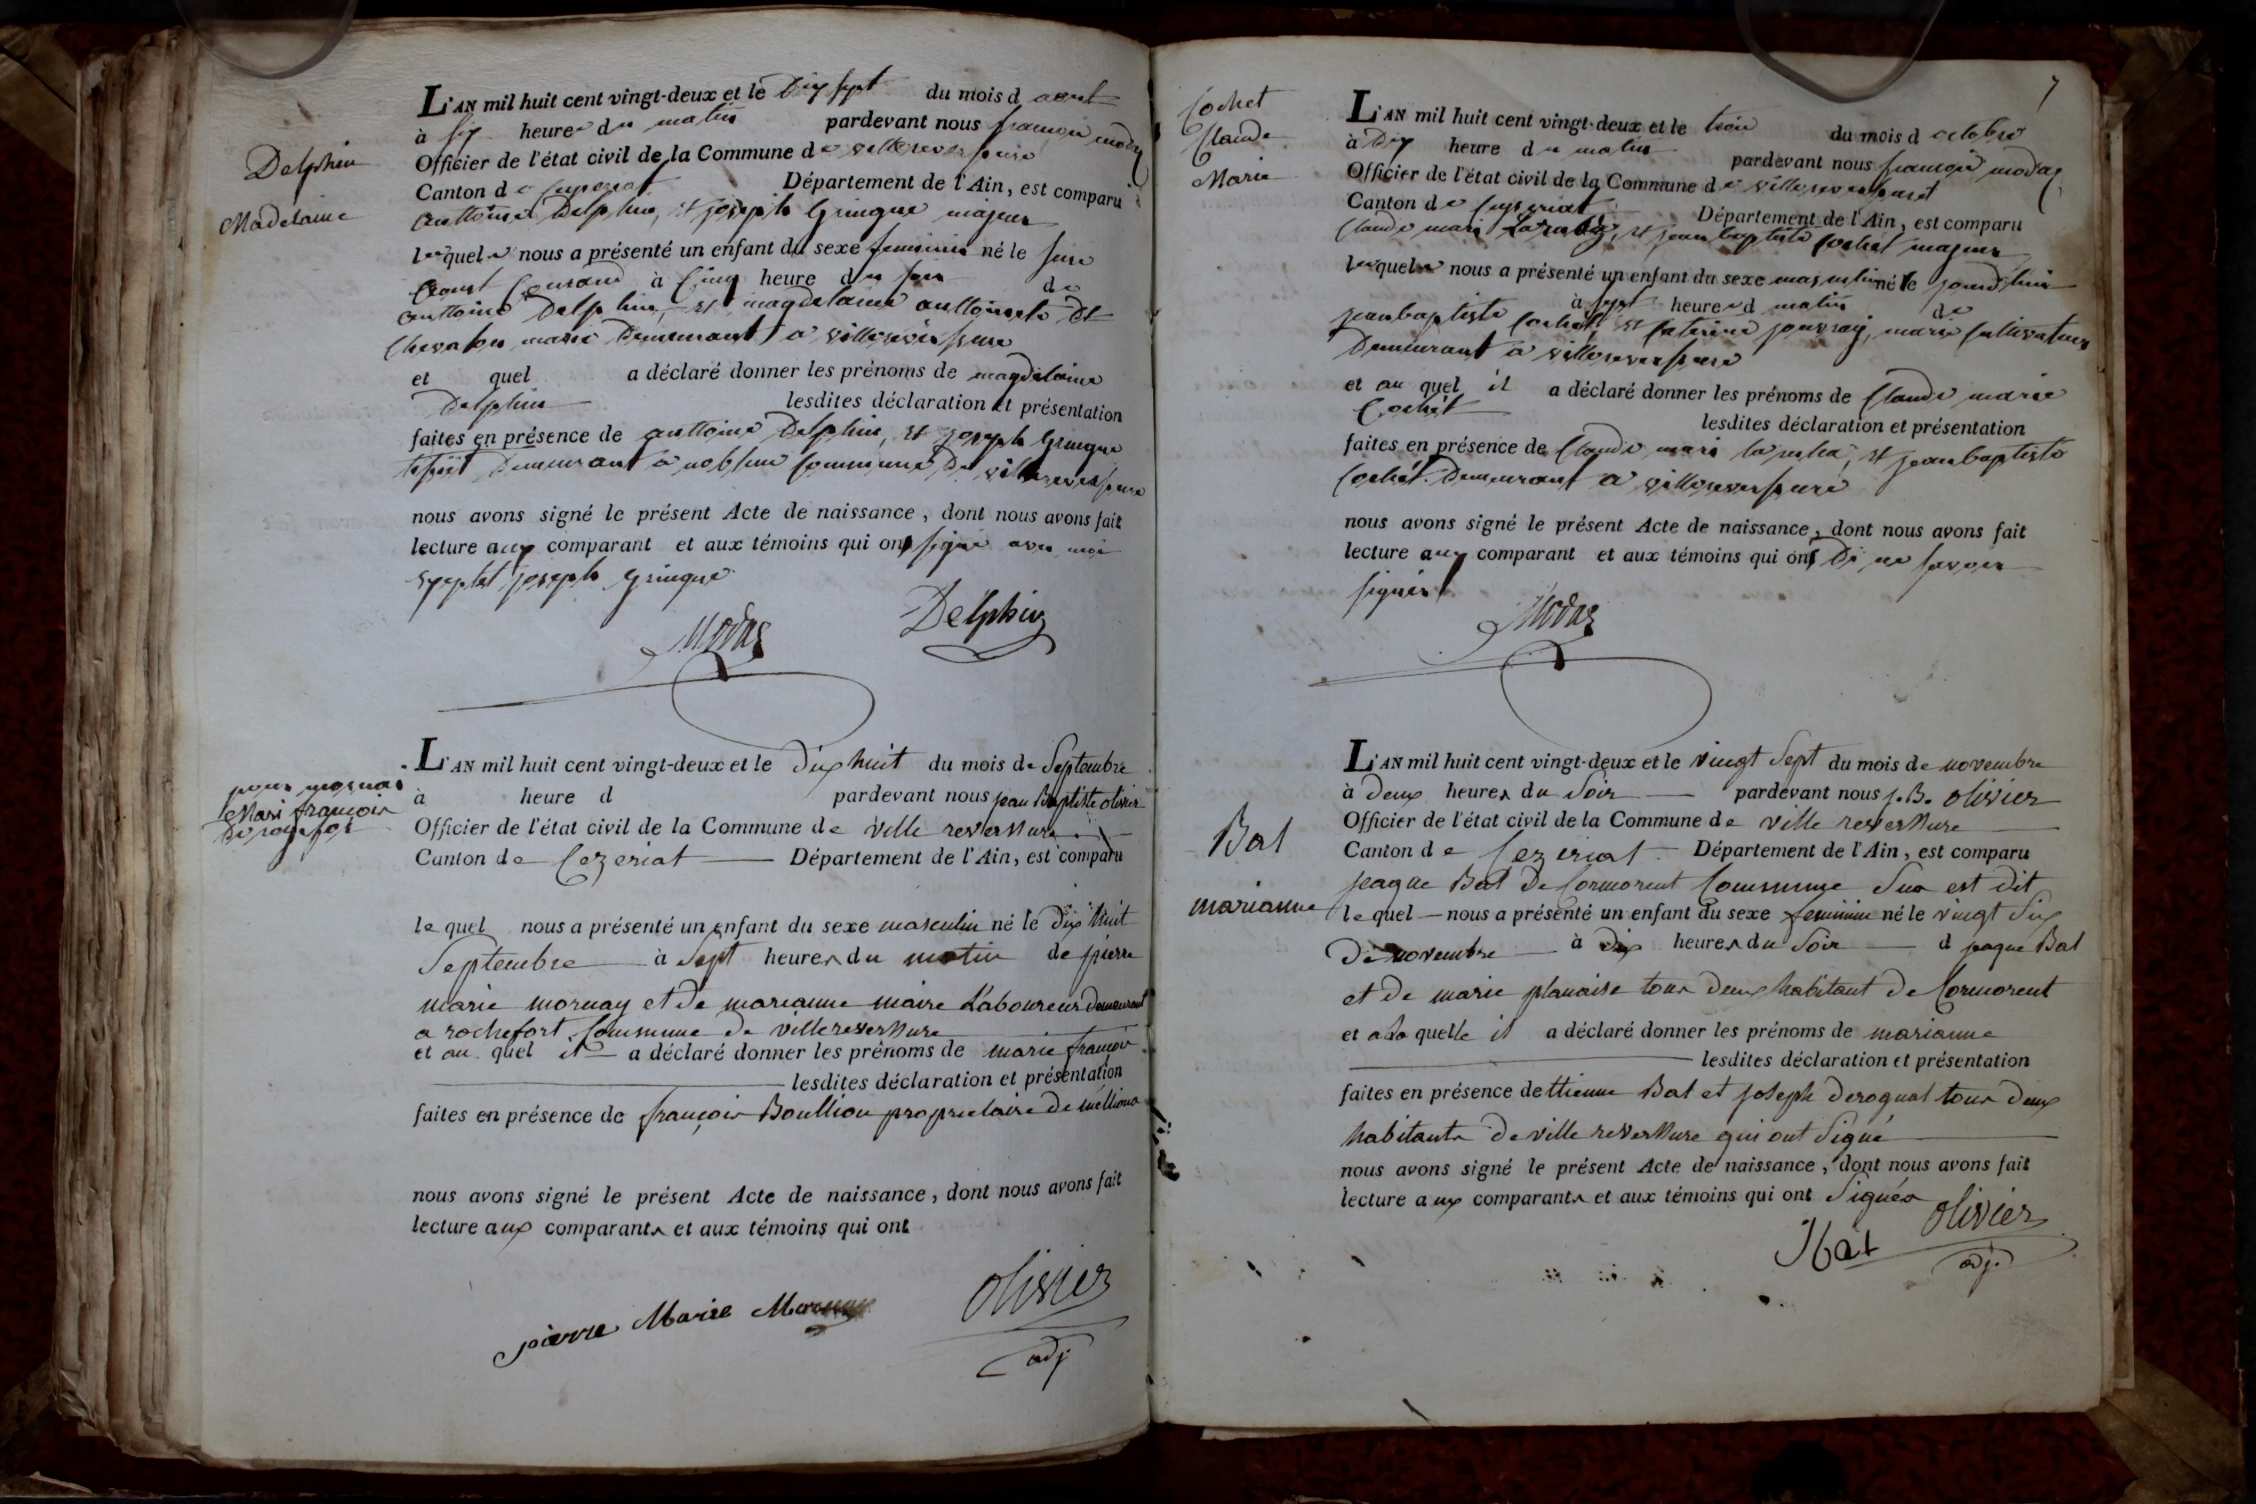 Delphin
Madelaine
L'AN mil huit cent vingt-deux et le Dix sept du mois d aout
à six heure du matin pardevant nous françois modas
Officier de l'état civil de la Commune de villereversure
Canton de Ceyseriat Département de l'Ain, est comparu
anttoine Delphin, et joseph Gringue majeur
lesquele nous a présenté un enfant du sexe feminin né le seize
aout Courant à Cinq heure du soir de
anttoine Delphin, et magdelaine anttoinete
Chevalier marié Demeurant a villereversure
et quel a déclaré donner les prénoms de magdelaine
Delphin lesdites déclaration et présentation
faites en présence de anttoine Delphin, et joseph Gringue
Demeurant a noblens Commune De villereversure
nous avons signé le présent Acte de naissance, dont nous avons fait
lecture aux comparant et aux témoins qui ont signé avec moi
joseph Gringue
Modas Delphin
pour mornai
Mari françois
De rochefort
L'AN mil huit cent vingt-deux et le dix huit du mois de Septembre
à heure d pardevant nous jean Baptiste olivier
Officier de l'état civil de la Commune de ville reversure
Canton de Cezeriat Département de l'Ain, est comparu
le quel nous a présenté un enfant du sexe masculin né le dix huit
Septembre à Sept heures du matin de pierre
marie mornay et de marianne maire Laboureur demeurant
a rochefort Commune de villereversure
et au quel il a déclaré donner les prénoms de marie françois
lesdites déclaration et présentation
faites en présence de françois Boullion proprietaire de
nous avons signé le présent Acte de naissance, dont nous avons fait
lecture aux comparants et aux témoins qui ont
pierre Marie Mornay
olivier
adj
7
Cochet
Claude
Marie
L'AN mil huit cent vingt-deux et le trois du mois d octobre
à Dix heure du matin pardevant nous françois modas
Officier de l'état civil de la Commune de villereversure
Canton de Ceyseriat Département de l'Ain, est comparu
Claude mari et jean baptiste Cochet majeur
lesquele nous a présenté un enfant du sexe masculin né le jourdhui
à sept heure d matin de
jean baptiste Cochet et Caterine jouvray, marié Cultivateur
Demeurant a villereversure
et au quel il a déclaré donner les prénoms de Claude marie
Cochet lesdites déclaration et présentation
faites en présence de Claude mari et jean baptiste
Cochet Demeurant a villereversure
nous avons signé le présent Acte de naissance, dont nous avons fait
lecture aux comparant et aux témoins qui ont Di ne savoir
signer
Modas
Bal
marianne
L'AN mil huit cent vingt-deux et le vingt Sept du mois de novembre
à deux heures du Soir pardevant nous J. B. olivier
Officier de l'état civil de la Commune de ville reversure
Canton de Cezeriat Département de l'Ain, est comparu
jaque Bal de Cormorent Commune Sus est dit
le quel nous a présenté un enfant du sexe feminin né le vingt Six
De novembre à dix heures du Soir d jaque Bal
et de marie planaise tous deux habitant de Cormorent
et a la quelle il a déclaré donner les prénoms de marianne
lesdites déclaration et présentation
faites en présence dettienne Bal et joseph derognat tous deux
habitants de ville reversure qui ont Signé
nous avons signé le présent Acte de naissance, dont nous avons fait
lecture aux comparants et aux témoins qui ont Signés
Bal olivier
adj.